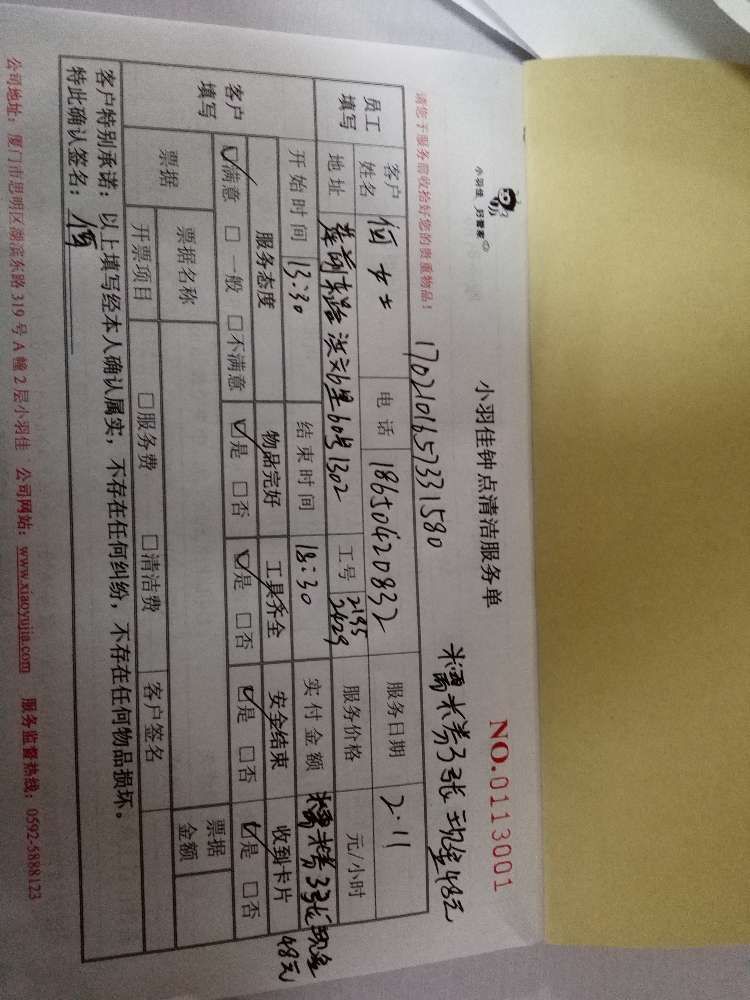 小羽佳 好管家
小羽佳钟点清洁服务单
NO.0113001
请您于服务前收拾好您的贵重物品！
1702101657331580
糯米券3张 现金48元
员工填写
客户姓名 何女士 电话 18650420832 服务日期 2.11
地址 莲前东路 洪文6里60号1302 工号 2195 2429 服务价格 元/小时
开始时间 13:30 结束时间 18:30 实付金额 糯米券3张现金48元
客户填写
服务态度 物品完好 工具齐全 安全结束 收到卡片
☑满意 □一般 □不满意 ☑是 □否 ☑是 □否 ☑是 □否 ☑是 □否
票据 票据名称 票据金额
开票项目 □服务费 □清洁费 客户签名
客户特别承诺：以上填写经本人确认属实，不存在任何纠纷，不存在任何物品损坏。
特此确认签名：何
公司地址：厦门市思明区湖滨东路319号A幢2层小羽佳 公司网站：www.xiaoyujia.com 服务监督热线：0592-5888123